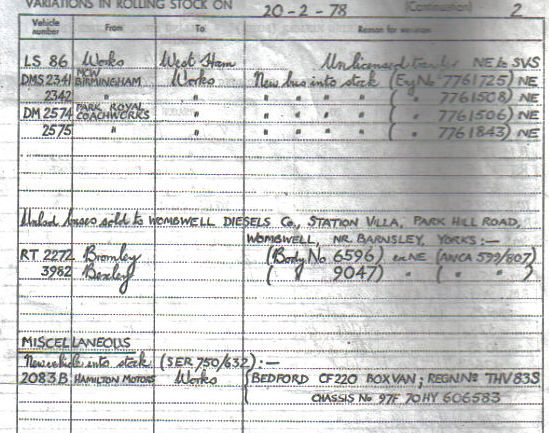 VARIATIONS IN ROLLING STOCK ON 20-2-78 (Continuation) 2
Vehicle number From To Reason for
LS 86 Works West Ham Unlicensed NE to SVS
DMS 2341 MCW BIRMINGHAM Works New bus into stock (Eng No 7761725) NE
2342 " " " " " " " ( " 7761508) NE
DM 2574 PARK ROYAL COACHWORKS " " " " " ( " 7761506) NE
2575 " " " " " " ( " 7761843) NE
Unlicd buses sold to WOMBWELL DIESELS Co., STATION VILLA, PARK HILL ROAD,
WOMBWELL, NR. BARNSLEY, YORKS:—
RT 2272 Bromley (Body No 6596) ex NE (ANCA 599/807)
3982 Bexley ( " 9047) " ( " " )
MISCELLANEOUS
New vehicle into stock (SER 750/632):—
2083B HAMILTON MOTORS Works BEDFORD CF220 BOXVAN; REGN. No THV 83S
CHASSIS No 97F 70HY 606583